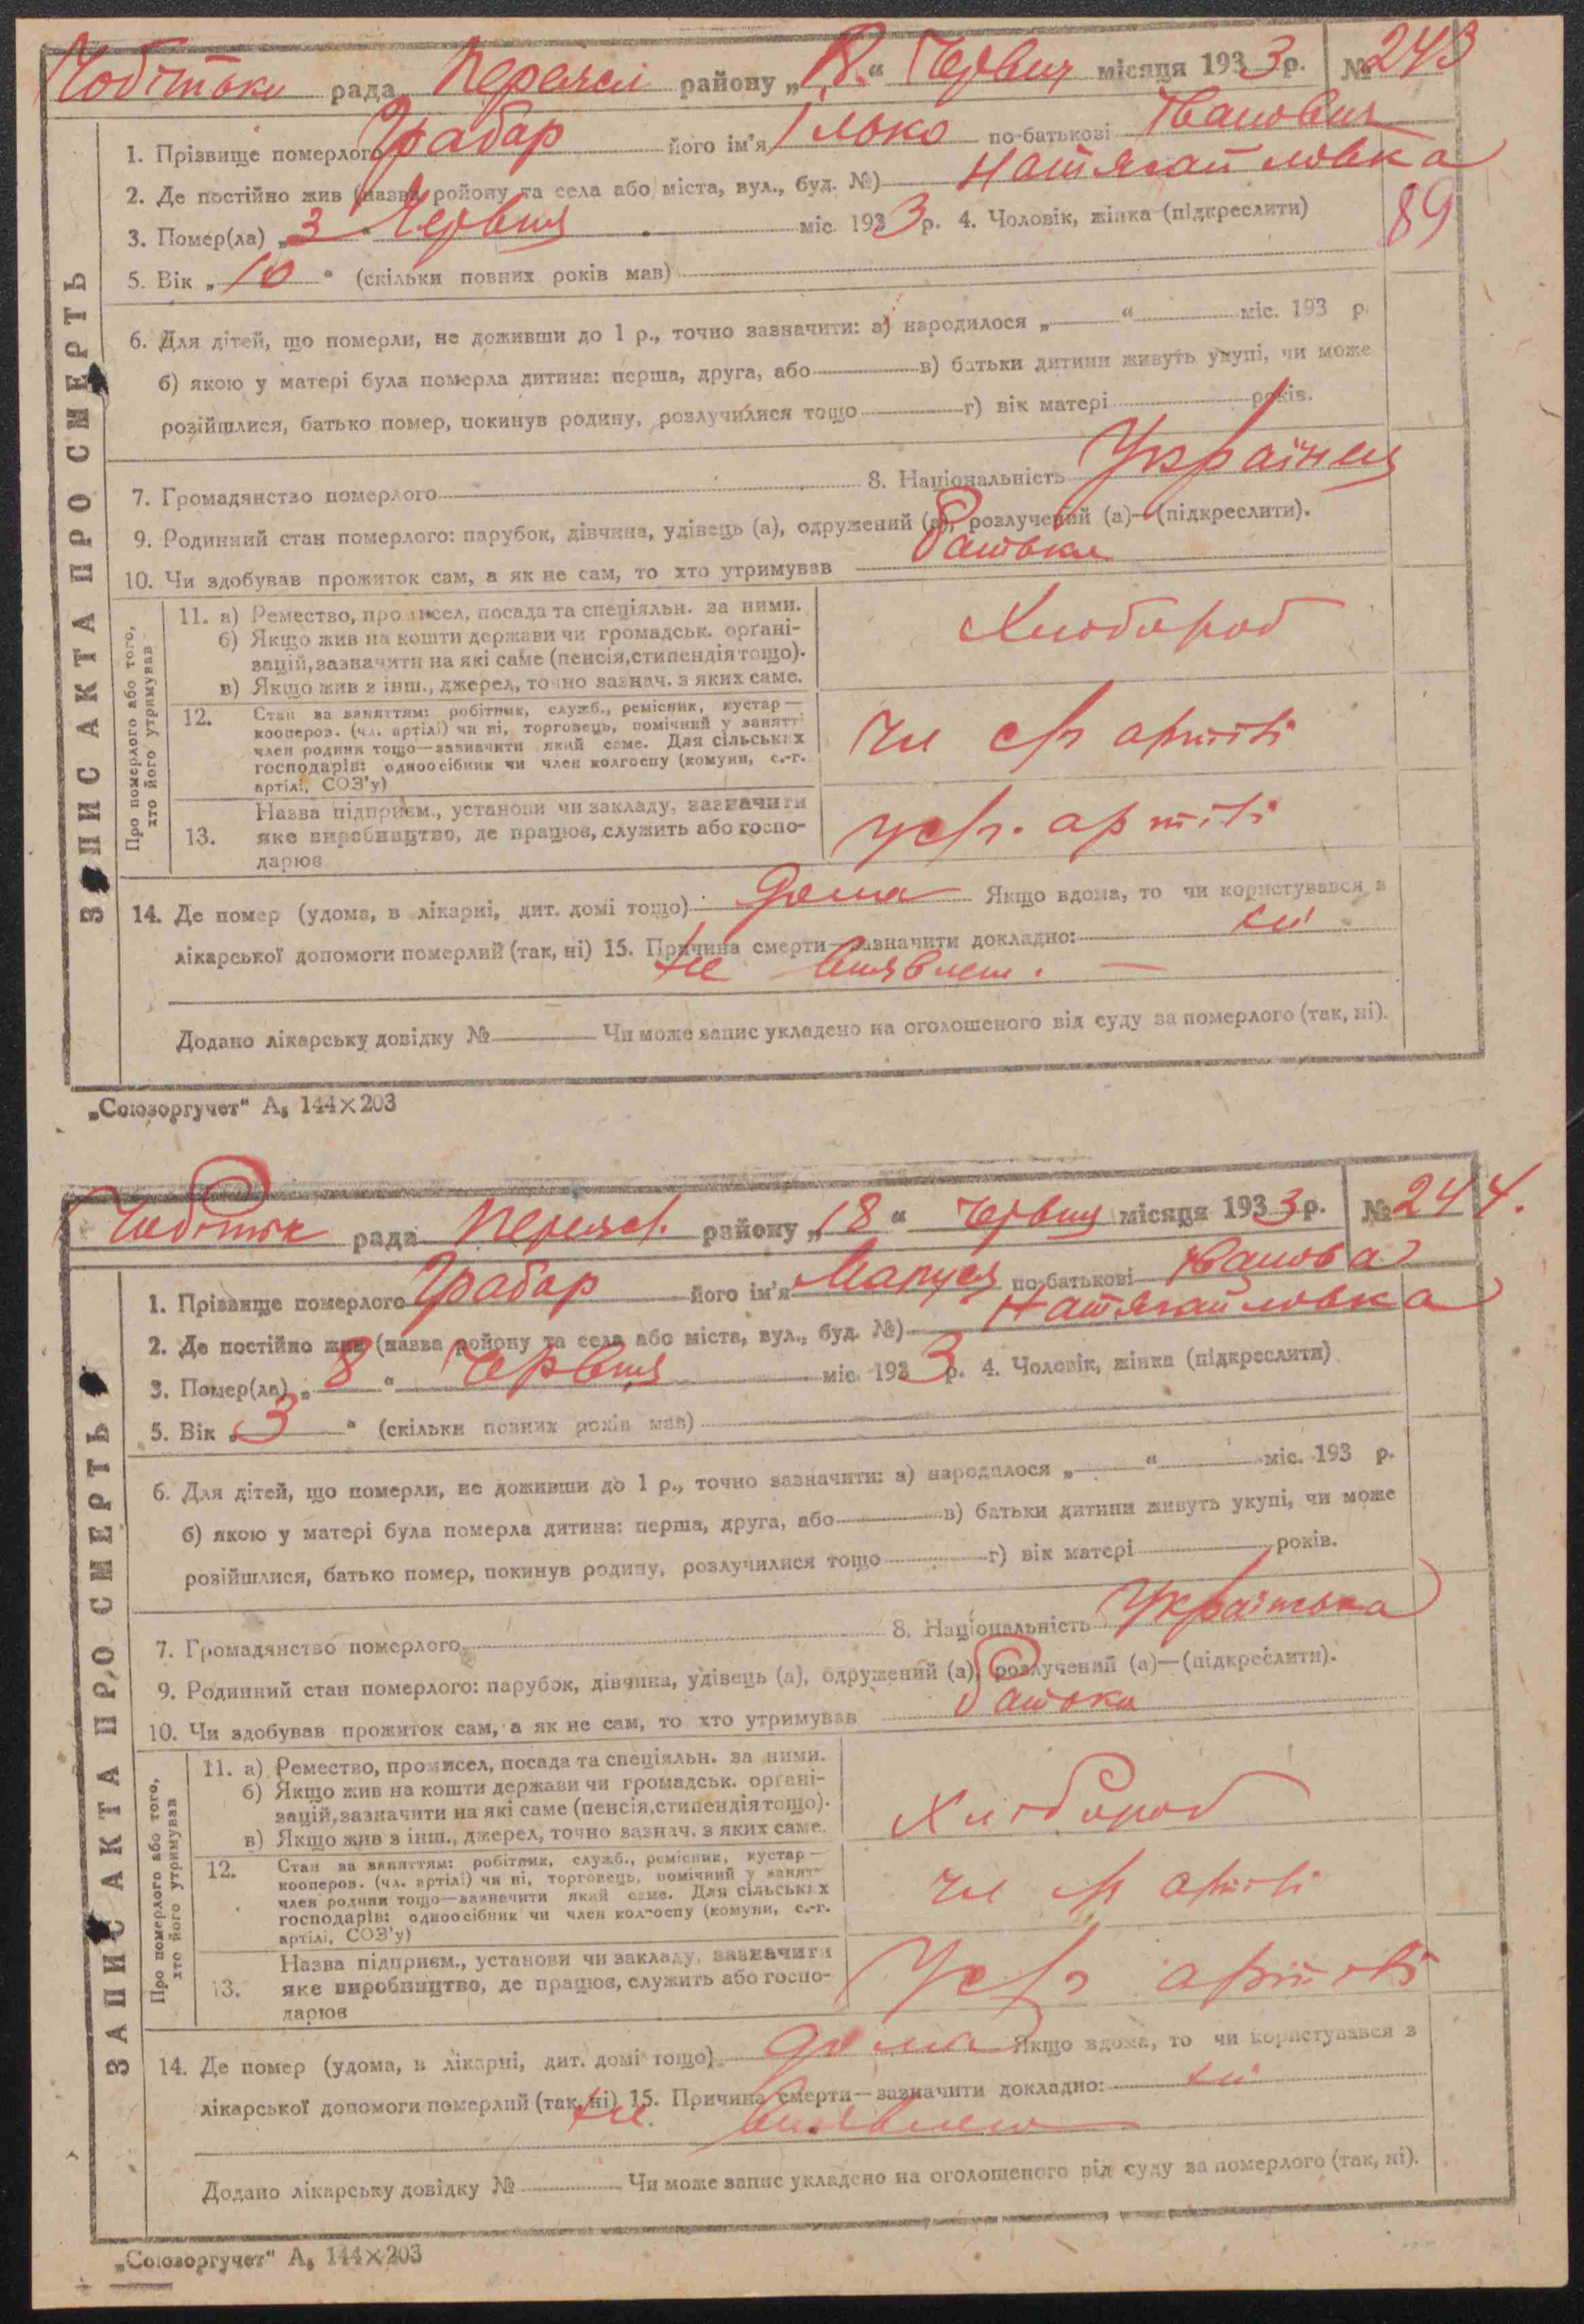 рада Переясл району „18“ Червня місяця 1933 р. № 243
89
ЗАПИС АКТА ПРО СМЕРТЬ
1. Прізвище померлого Грабар його ім'я Ілько по-батькові Іванович
2. Де постійно жив (назва ройону та села або міста, вул., буд. №) Натягайловка
3. Помер(ла) „3“ Червня міс. 1933 р. 4. Чоловік, жінка (підкреслити)
5. Вік „10“ (скільки повних років мав)
6. Для дітей, що померли, не доживши до 1 р., точно зазначити: а) народилося „ “ міс. 193 р.
б) якою у матері була померла дитина: перша, друга, або в) батьки дитини живуть укупі, чи може
розійшлися, батько помер, покинув родину, розлучилися тощо г) вік матері років.
7. Громадянство померлого 8. Національність Українец
9. Родинний стан померлого: парубок, дівчина, удівець (а), одружений (а), розлучений (а)—(підкреслити).
10. Чи здобував прожиток сам, а як не сам, то хто утримував батьки
Про померлого або того,
хто його утримував
11. а) Ремество, промисел, посада та спеціяльн. за ними.
б) Якщо жив на кошти держави чи громадськ. орґані-
зацій, зазначити на які саме (пенсія, стипендія тощо).
в) Якщо жив з інш., джерел, точно зазнач. з яких саме.
Хлібороб
12. Стан за заняттям: робітник, служб., ремісник, кустар—
кооперов. (чл. артілі) чи ні, торговець, помічний у занятті
член родини тощо—зазначити який саме. Для сільських
господарів: одноосібник чи член колгоспу (комуни, с.-г.
артілі, СОЗ'у)
чл с/г артілі
13. Назва підприєм., установи чи закладу, зазначити
яке виробництво, де працюв, служить або госпо-
дарюв
у с/г. артілі
14. Де помер (удома, в лікарні, дит. домі тощо) дома Якщо вдома, то чи користувався з
лікарської допомоги померлий (так, ні) 15. Причина смерти—зазначити докладно: ні
не виявлен.
Додано лікарську довідку № Чи може запис укладено на оголошеного від суду за померлого (так, ні).
„Союзоргучет“ А₅ 144×203
рада Переясл. району „18“ Червня місяця 1933 р. № 244.
ЗАПИС АКТА ПРО СМЕРТЬ
1. Прізвище померлого Грабар його ім'я Маруся по-батькові Іванова
2. Де постійно жив (назва ройону та села або міста, вул., буд. №) Натягайловка
3. Помер(ла) „8“ Червня міс. 1933 р. 4. Чоловік, жінка (підкреслити)
5. Вік „3“ (скільки повних років мав)
6. Для дітей, що померли, не доживши до 1 р., точно зазначити: а) народилося „ “ міс. 193 р.
б) якою у матері була померла дитина: перша, друга, або в) батьки дитини живуть укупі, чи може
розійшлися, батько помер, покинув родину, розлучилися тощо г) вік матері років.
7. Громадянство померлого 8. Національність Українка
9. Родинний стан померлого: парубок, дівчина, удівець (а), одружений (а), розлучений (а)—(підкреслити).
10. Чи здобував прожиток сам, а як не сам, то хто утримував батьки
Про померлого або того,
хто його утримував
11. а) Ремество, промисел, посада та спеціяльн. за ними.
б) Якщо жив на кошти держави чи громадськ. орґані-
зацій, зазначити на які саме (пенсія, стипендія тощо).
в) Якщо жив з інш., джерел, точно зазнач. з яких саме.
Хлібороб
12. Стан за заняттям: робітник, служб., ремісник, кустар—
кооперов. (чл. артілі) чи ні, торговець, помічний у занятт
член родини тощо—зазначити який саме. Для сільських
господарів: одноосібник чи член колгоспу (комуни, с.-г.
артілі, СОЗ'у)
чл с/г артілі
13. Назва підприєм., установи чи закладу, зазначити
яке виробництво, де працюв, служить або госпо-
дарюв
у с/г артілі
14. Де помер (удома, в лікарні, дит. домі тощо) дома Якщо вдома, то чи користувався з
лікарської допомоги померлий (так, ні) 15. Причина смерти—зазначити докладно: ні
не виявлено
Додано лікарську довідку № Чи може запис укладено на оголошеного від суду за померлого (так, ні).
„Союзоргучет“ А₅ 144×203